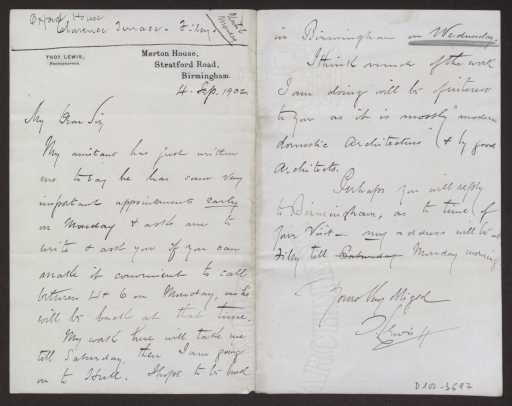 Oxford House
Clarence Terrace. Filey.
until
Monday
THOS. LEWIS,
Photographer.
Merton House,
Stratford Road,
Birmingham.
4. Sep. 1902
My Dear Sir,
My assistant has just written
me to say he has some very
important appointments early
on Monday & asks me to
write & ask you if you can
make it convenient to call
between 4 & 6 on Monday, as he
will be back at that time.
My work here will take me
till Saturday, then I am going
on to Hull. I hope to be back
in Birmingham on Wednesday.
I think much of the work
I am doing will be of interest
to you as it is mostly "modern
domestic Architecture" & by good
Architects.
Perhaps you will reply
to Birmingham, as to time of
your visit – my address will be at
Filey till Saturday Monday morning
Yours obliged
T Lewis
D102-3682